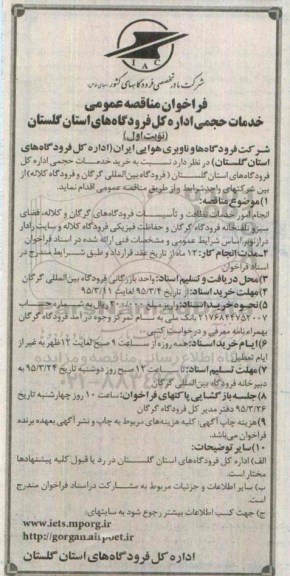 IAC
شرکت مادر تخصصی فرودگاههای کشور
فراخوان مناقصه عمومی
خدمات حجمی اداره کل فرودگاه های استان گلستان
(نوبت اول)
شرکت فرودگاه ها و ناوبری هوایی ایران (اداره کل فرودگاه های
استان گلستان) در نظر دارد نسبت به خرید خدمات حجمی اداره کل
فرودگاه های استان گلستان (فرودگاه بین المللی گرگان و فرودگاه کلاله) از
بین شرکتهای واجد شرایط و از طریق مناقصه عمومی اقدام نماید.
۱) موضوع مناقصه:
انجام امور خدمات نظافت و تأسیسات فرودگاه های گرگان و کلاله، فضای
سبز و باغبانی فرودگاه گرگان و حفاظت فیزیکی فرودگاه کلاله و سایت رادار
درازنو بر اساس شرایط عمومی و مشخصات فنی ارائه شده در اسناد فراخوان
۲- مدت انجام کار: ۱۲ ماه از تاریخ عقد قرارداد و طبق شرایط مندرج در
اسناد فراخوان
۳) محل دریافت و تسلیم اسناد: واحد بازرگانی فرودگاه بین المللی گرگان
۴) مهلت خرید اسناد: از تاریخ ۹۵/۳/۴ لغایت ۹۵/۳/۱۱
۵) نحوه خرید اسناد: واریز مبلغ ریال به شماره حساب
۲۱۷۶۸۴۴۷۵۲۰۰۷ بانک ملی به نام تمرکز وجوه درآمد فرودگاه گرگان
بهمراه نامه معرفی و درخواست کتبی...
۶) ایام خرید اسناد: همه روزه از ساعت ۹ صبح لغایت ۱۲ ظهر به غیر از
ایام تعطیل
۷) مهلت تسلیم اسناد: تا ساعت ۱۲ صبح روز دوشنبه تاریخ ۹۵/۳/۲۴ به
دبیرخانه فرودگاه بین المللی گرگان
۸) جلسه بازگشایی پاکتهای فراخوان: ساعت ۱۰ روز چهارشنبه تاریخ
۹۵/۳/۲۶ دفتر مدیر کل فرودگاه گرگان
۹) هزینه چاپ آگهی: کلیه هزینه های مربوط به چاپ و نشر آگهی بعهده برنده
فراخوان می باشد.
۱۰) سایر توضیحات:
الف) اداره کل فرودگاه های استان گلستان در رد یا قبول کلیه پیشنهادها
مختار است.
ب) سایر اطلاعات و جزئیات مربوط به مشارکت در اسناد فراخوان مندرج
است.
ج) جهت کسب اطلاعات بیشتر رجوع شود به سایتهای:
www.iets.mporg.ir
http://gorgan.airport.ir
اداره کل فرودگاه های استان گلستان